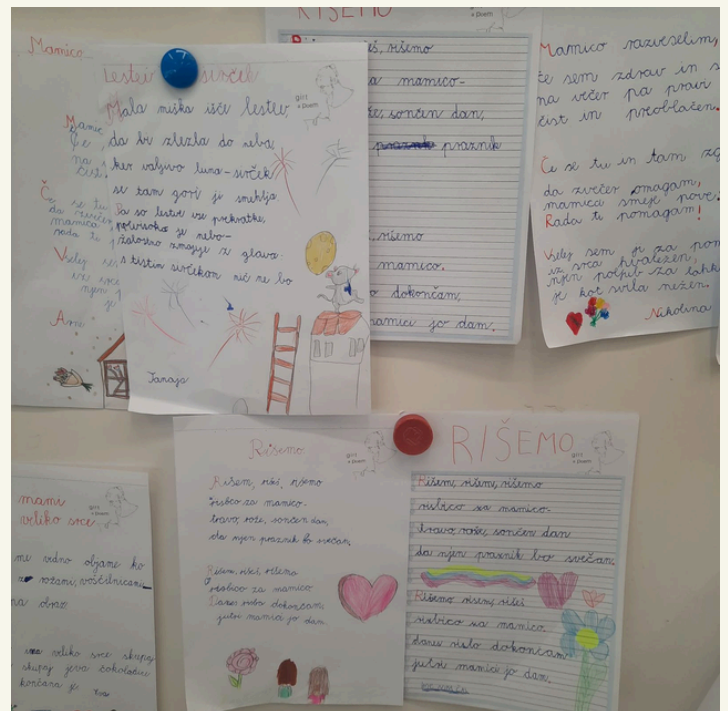 Mamico
Mamic
Če se tu
da zvečer
mamica
rada ti
Vselej sem
iz srca
njen
je
Arne
Lestev sirček
Mala miška išče lestev,
da bi zlezla do neba,
ker valjivo luna-sirček
se tam gori je smehlja
Pa so lestve vse prekratke,
previsoko je nebo-
žalostno zmajuje z glavo.
s tistim sirčekom nič ne bo
Tanaja
RIŠEMO
iš, rišemo
a mamico-
že, sončen dan,
praznik praznik
, rišemo
mamico.
o dokončam,
mamici jo dam.
Mamico razveselim,
če sem zdrav in s
na večer pa pravi
čist in preoblečen.
Če se tu in tam zg
da zvečer omagam,
mamica smeje pove:
Rada ti pomagam!
Vselej sem ji za pom
iz srca hvaležen,
njen poljub za lahk
je kot svila nežen.
Nikolina
mami
veliko srce
me vidno objame ko
z rožami, voščilnicami
na obraz
veliko srce skupaj
skupaj jeva čokoladice
končana je
Rišemo
Rišem, rišeš, rišemo
risbico za mamico-
travo, rože, sončen dan,
da njen praznik bo svečan.
Rišem, rišeš, rišemo
risbico za mamico
Danes risbo dokončam,
jutri mamici jo dam.
RIŠEMO
Rišem, rišem, rišemo
risbico za mamico-
travo, rože, sončen dan
da njen praznik bo svečan.
Rišemo risem, rišeš
risbico za mamico.
danes risbo dokončam
jutri mamici jo dam.